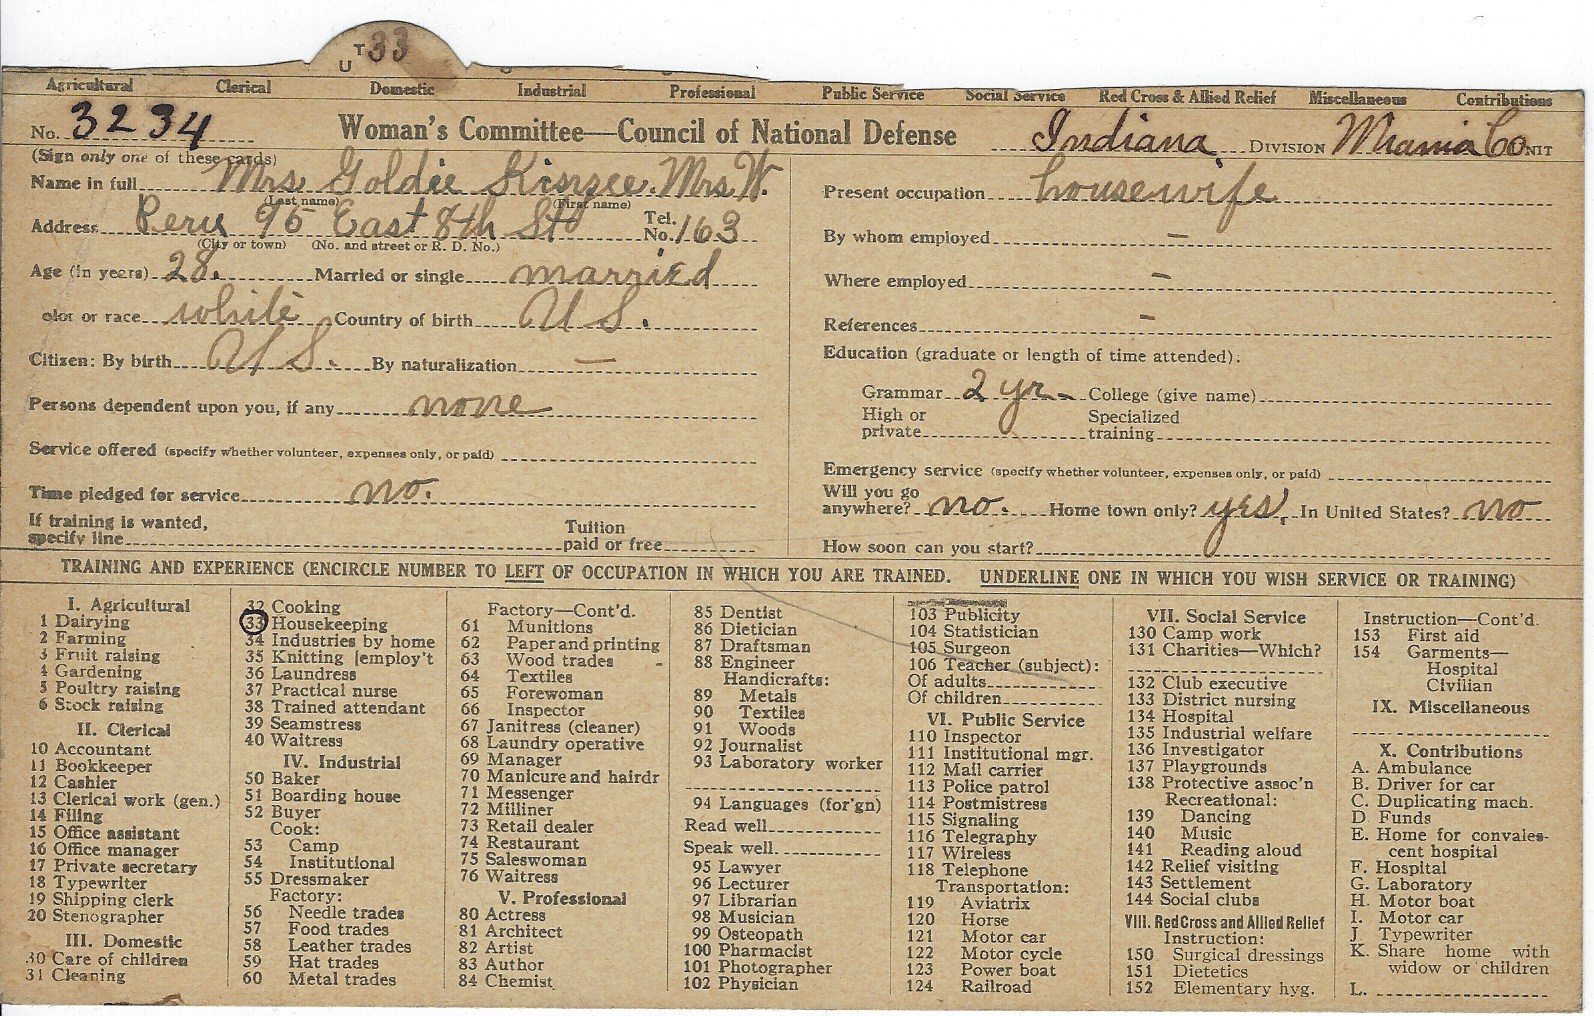 T 33
U
Agricultural Clerical Domestic Industrial Professional Public Service Social Service Red Cross & Allied Relief Miscellaneous Contributions
No. 3234 Woman's Committee—Council of National Defense Indiana DIVISION Miami Co NIT
(Sign only one of these cards)
Name in full Mrs Goldie Kinzee. Mrs W.
(Last name) (First name)
Address Peru 95 East 8th St Tel. No. 163
(City or town) (No. and street or R. D. No.)
Age (in years) 28. Married or single married
olor or race white Country of birth U S.
Citizen: By birth U S. By naturalization —
Persons dependent upon you, if any none
Service offered (specify whether volunteer, expenses only, or paid)
Time pledged for service no.
If training is wanted,
specify line Tuition paid or free
Present occupation housewife
By whom employed –
Where employed –
References –
Education (graduate or length of time attended):
Grammar 2 yr. College (give name)
High or private Specialized training
Emergency service (specify whether volunteer, expenses only, or paid)
Will you go
anywhere? no. Home town only? yes, In United States? no
How soon can you start?
TRAINING AND EXPERIENCE (ENCIRCLE NUMBER TO LEFT OF OCCUPATION IN WHICH YOU ARE TRAINED. UNDERLINE ONE IN WHICH YOU WISH SERVICE OR TRAINING)
I. Agricultural
1 Dairying
2 Farming
3 Fruit raising
4 Gardening
5 Poultry raising
6 Stock raising
II. Clerical
10 Accountant
11 Bookkeeper
12 Cashier
13 Clerical work (gen.)
14 Filing
15 Office assistant
16 Office manager
17 Private secretary
18 Typewriter
19 Shipping clerk
20 Stenographer
III. Domestic
30 Care of children
31 Cleaning
32 Cooking
33 Housekeeping
34 Industries by home
35 Knitting [employ't
36 Laundress
37 Practical nurse
38 Trained attendant
39 Seamstress
40 Waitress
IV. Industrial
50 Baker
51 Boarding house
52 Buyer
Cook:
53 Camp
54 Institutional
55 Dressmaker
Factory:
56 Needle trades
57 Food trades
58 Leather trades
59 Hat trades
60 Metal trades
Factory—Cont'd.
61 Munitions
62 Paper and printing
63 Wood trades
64 Textiles
65 Forewoman
66 Inspector
67 Janitress (cleaner)
68 Laundry operative
69 Manager
70 Manicure and hairdr
71 Messenger
72 Milliner
73 Retail dealer
74 Restaurant
75 Saleswoman
76 Waitress
V. Professional
80 Actress
81 Architect
82 Artist
83 Author
84 Chemist
85 Dentist
86 Dietician
87 Draftsman
88 Engineer
Handicrafts:
89 Metals
90 Textiles
91 Woods
92 Journalist
93 Laboratory worker
94 Languages (for'gn)
Read well
Speak well
95 Lawyer
96 Lecturer
97 Librarian
98 Musician
99 Osteopath
100 Pharmacist
101 Photographer
102 Physician
103 Publicity
104 Statistician
105 Surgeon
106 Teacher (subject):
Of adults
Of children
VI. Public Service
110 Inspector
111 Institutional mgr.
112 Mail carrier
113 Police patrol
114 Postmistress
115 Signaling
116 Telegraphy
117 Wireless
118 Telephone
Transportation:
119 Aviatrix
120 Horse
121 Motor car
122 Motor cycle
123 Power boat
124 Railroad
VII. Social Service
130 Camp work
131 Charities—Which?
132 Club executive
133 District nursing
134 Hospital
135 Industrial welfare
136 Investigator
137 Playgrounds
138 Protective assoc'n
Recreational:
139 Dancing
140 Music
141 Reading aloud
142 Relief visiting
143 Settlement
144 Social clubs
VIII. Red Cross and Allied Relief
Instruction:
150 Surgical dressings
151 Dietetics
152 Elementary hyg.
Instruction—Cont'd.
153 First aid
154 Garments—
Hospital
Civilian
IX. Miscellaneous
X. Contributions
A. Ambulance
B. Driver for car
C. Duplicating mach.
D Funds
E. Home for convales-
cent hospital
F. Hospital
G. Laboratory
H. Motor boat
I. Motor car
J. Typewriter
K. Share home with
widow or children
L.